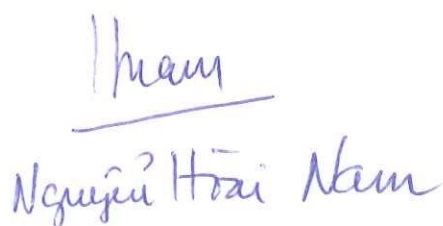 Nguyễn Hoài Nam